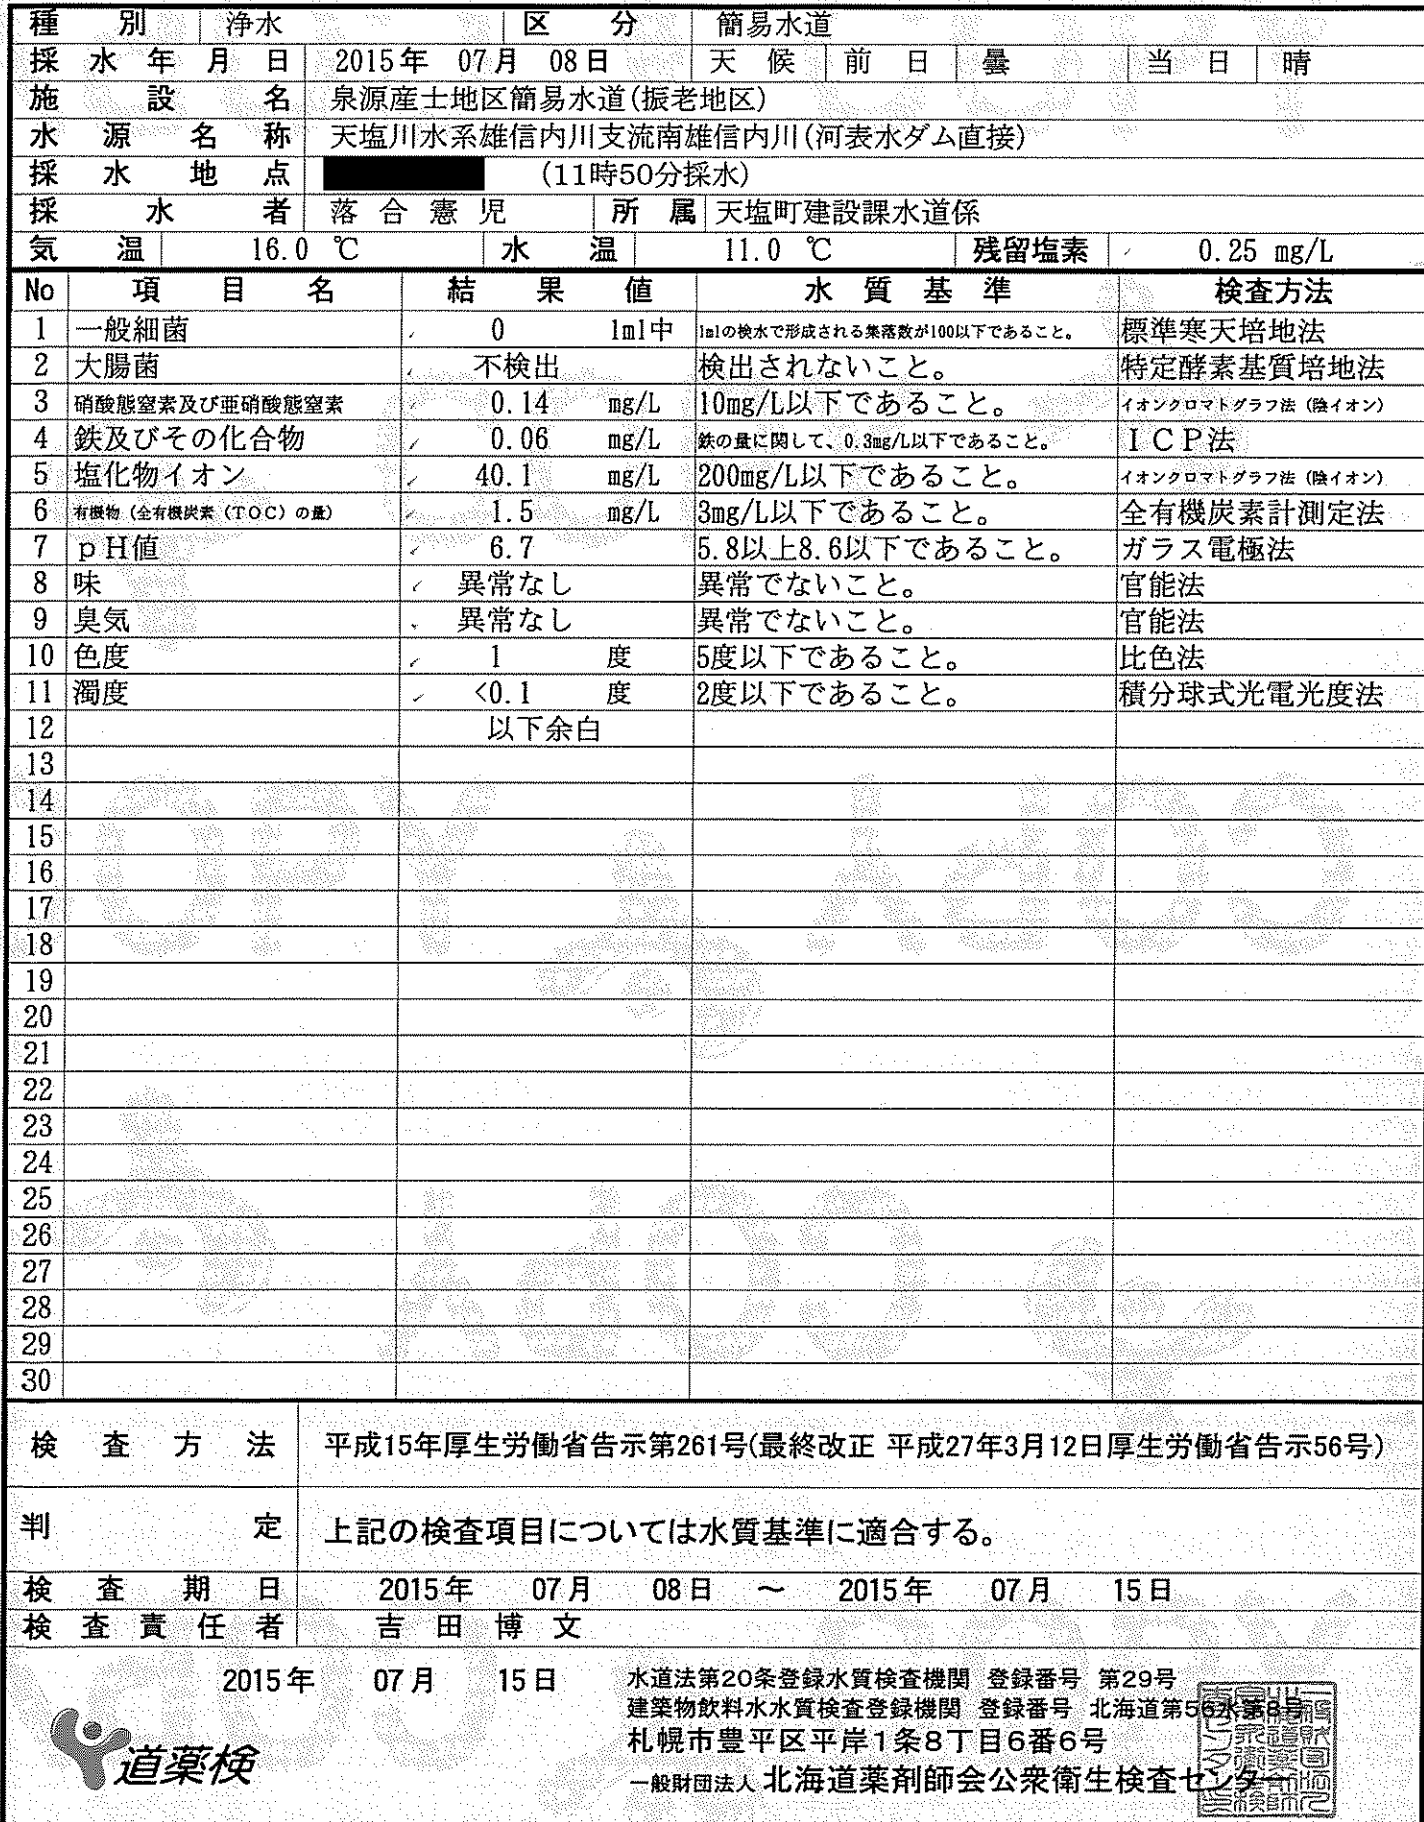 種別 浄水 区分 簡易水道
採水年月日 2015年 07月 08日 天候 前日 曇 当日 晴
施設名 泉源産士地区簡易水道(振老地区)
水源名称 天塩川水系雄信内川支流南雄信内川(河表水ダム直接)
採水地点 (11時50分採水)
採水者 落合憲児 所属 天塩町建設課水道係
気温 16.0 ℃ 水温 11.0 ℃ 残留塩素 0.25 mg/L
No 項目名 結果値 水質基準 検査方法
1 一般細菌 0 1ml中 1mlの検水で形成される集落数が100以下であること。 標準寒天培地法
2 大腸菌 不検出 検出されないこと。 特定酵素基質培地法
3 硝酸態窒素及び亜硝酸態窒素 0.14 mg/L 10mg/L以下であること。 イオンクロマトグラフ法(陰イオン)
4 鉄及びその化合物 0.06 mg/L 鉄の量に関して、0.3mg/L以下であること。 ICP法
5 塩化物イオン 40.1 mg/L 200mg/L以下であること。 イオンクロマトグラフ法(陰イオン)
6 有機物(全有機炭素(TOC)の量) 1.5 mg/L 3mg/L以下であること。 全有機炭素計測定法
7 pH値 6.7 5.8以上8.6以下であること。 ガラス電極法
8 味 異常なし 異常でないこと。 官能法
9 臭気 異常なし 異常でないこと。 官能法
10 色度 1 度 5度以下であること。 比色法
11 濁度 <0.1 度 2度以下であること。 積分球式光電光度法
12 以下余白
13
14
15
16
17
18
19
20
21
22
23
24
25
26
27
28
29
30
検査方法 平成15年厚生労働省告示第261号(最終改正 平成27年3月12日厚生労働省告示56号)
判定 上記の検査項目については水質基準に適合する。
検査期日 2015年 07月 08日 ～ 2015年 07月 15日
検査責任者 吉田博文
2015年 07月 15日
水道法第20条登録水質検査機関 登録番号 第29号
建築物飲料水水質検査登録機関 登録番号 北海道第56水第8号
札幌市豊平区平岸1条8丁目6番6号
一般財団法人 北海道薬剤師会公衆衛生検査センター
道薬検